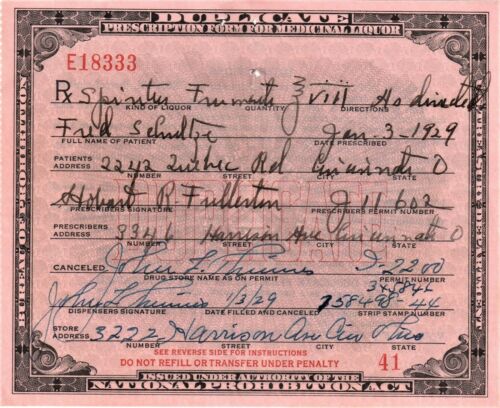 DUPLICATE
PRESCRIPTION FORM FOR MEDICINAL LIQUOR
E18333
℞ Spiritus Frumenti ℥ viii As directed
KIND OF LIQUOR QUANTITY DIRECTIONS
Fred Schultze Jan-3-1929
FULL NAME OF PATIENT DATE PRESCRIBED
PATIENTS ADDRESS 2242 Quebec Rd Cincinnati O
NUMBER STREET CITY STATE
Hobart R Fullerton J 11602
PRESCRIBERS SIGNATURE PRESCRIBERS PERMIT NUMBER
PRESCRIBERS ADDRESS 3346 Harrison Ave Cincinnati O
NUMBER STREET CITY STATE
CANCELED John L
DRUG STORE NAME AS ON PERMIT PERMIT NUMBER
John L 1/3/29 758498-44
DISPENSERS SIGNATURE DATE FILLED AND CANCELED STRIP STAMP NUMBER
STORE ADDRESS 3222 Harrison Ave Cin Ohio
NUMBER STREET CITY STATE
SEE REVERSE SIDE FOR INSTRUCTIONS
DO NOT REFILL OR TRANSFER UNDER PENALTY
41
ISSUED UNDER AUTHORITY OF THE
NATIONAL PROHIBITION ACT
BUREAU OF PROHIBITION
TREASURY DEPARTMENT